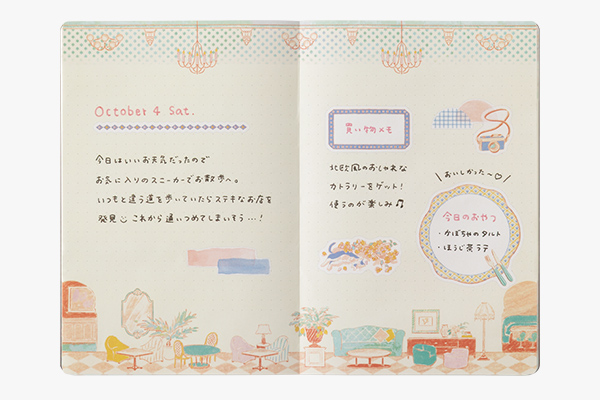 October 4 Sat.
今日はいいお天気だったので
お気に入りのスニーカーでお散歩へ。
いつもと違う道を歩いていたらステキなお店を
発見 これから通いつめてしまいそう…!
買い物メモ
北欧風のおしゃれな
カトラリーをゲット!
使うのが楽しみ♫
おいしかった〜♡
今日のおやつ
・かぼちゃのタルト
・ほうじ茶ラテ